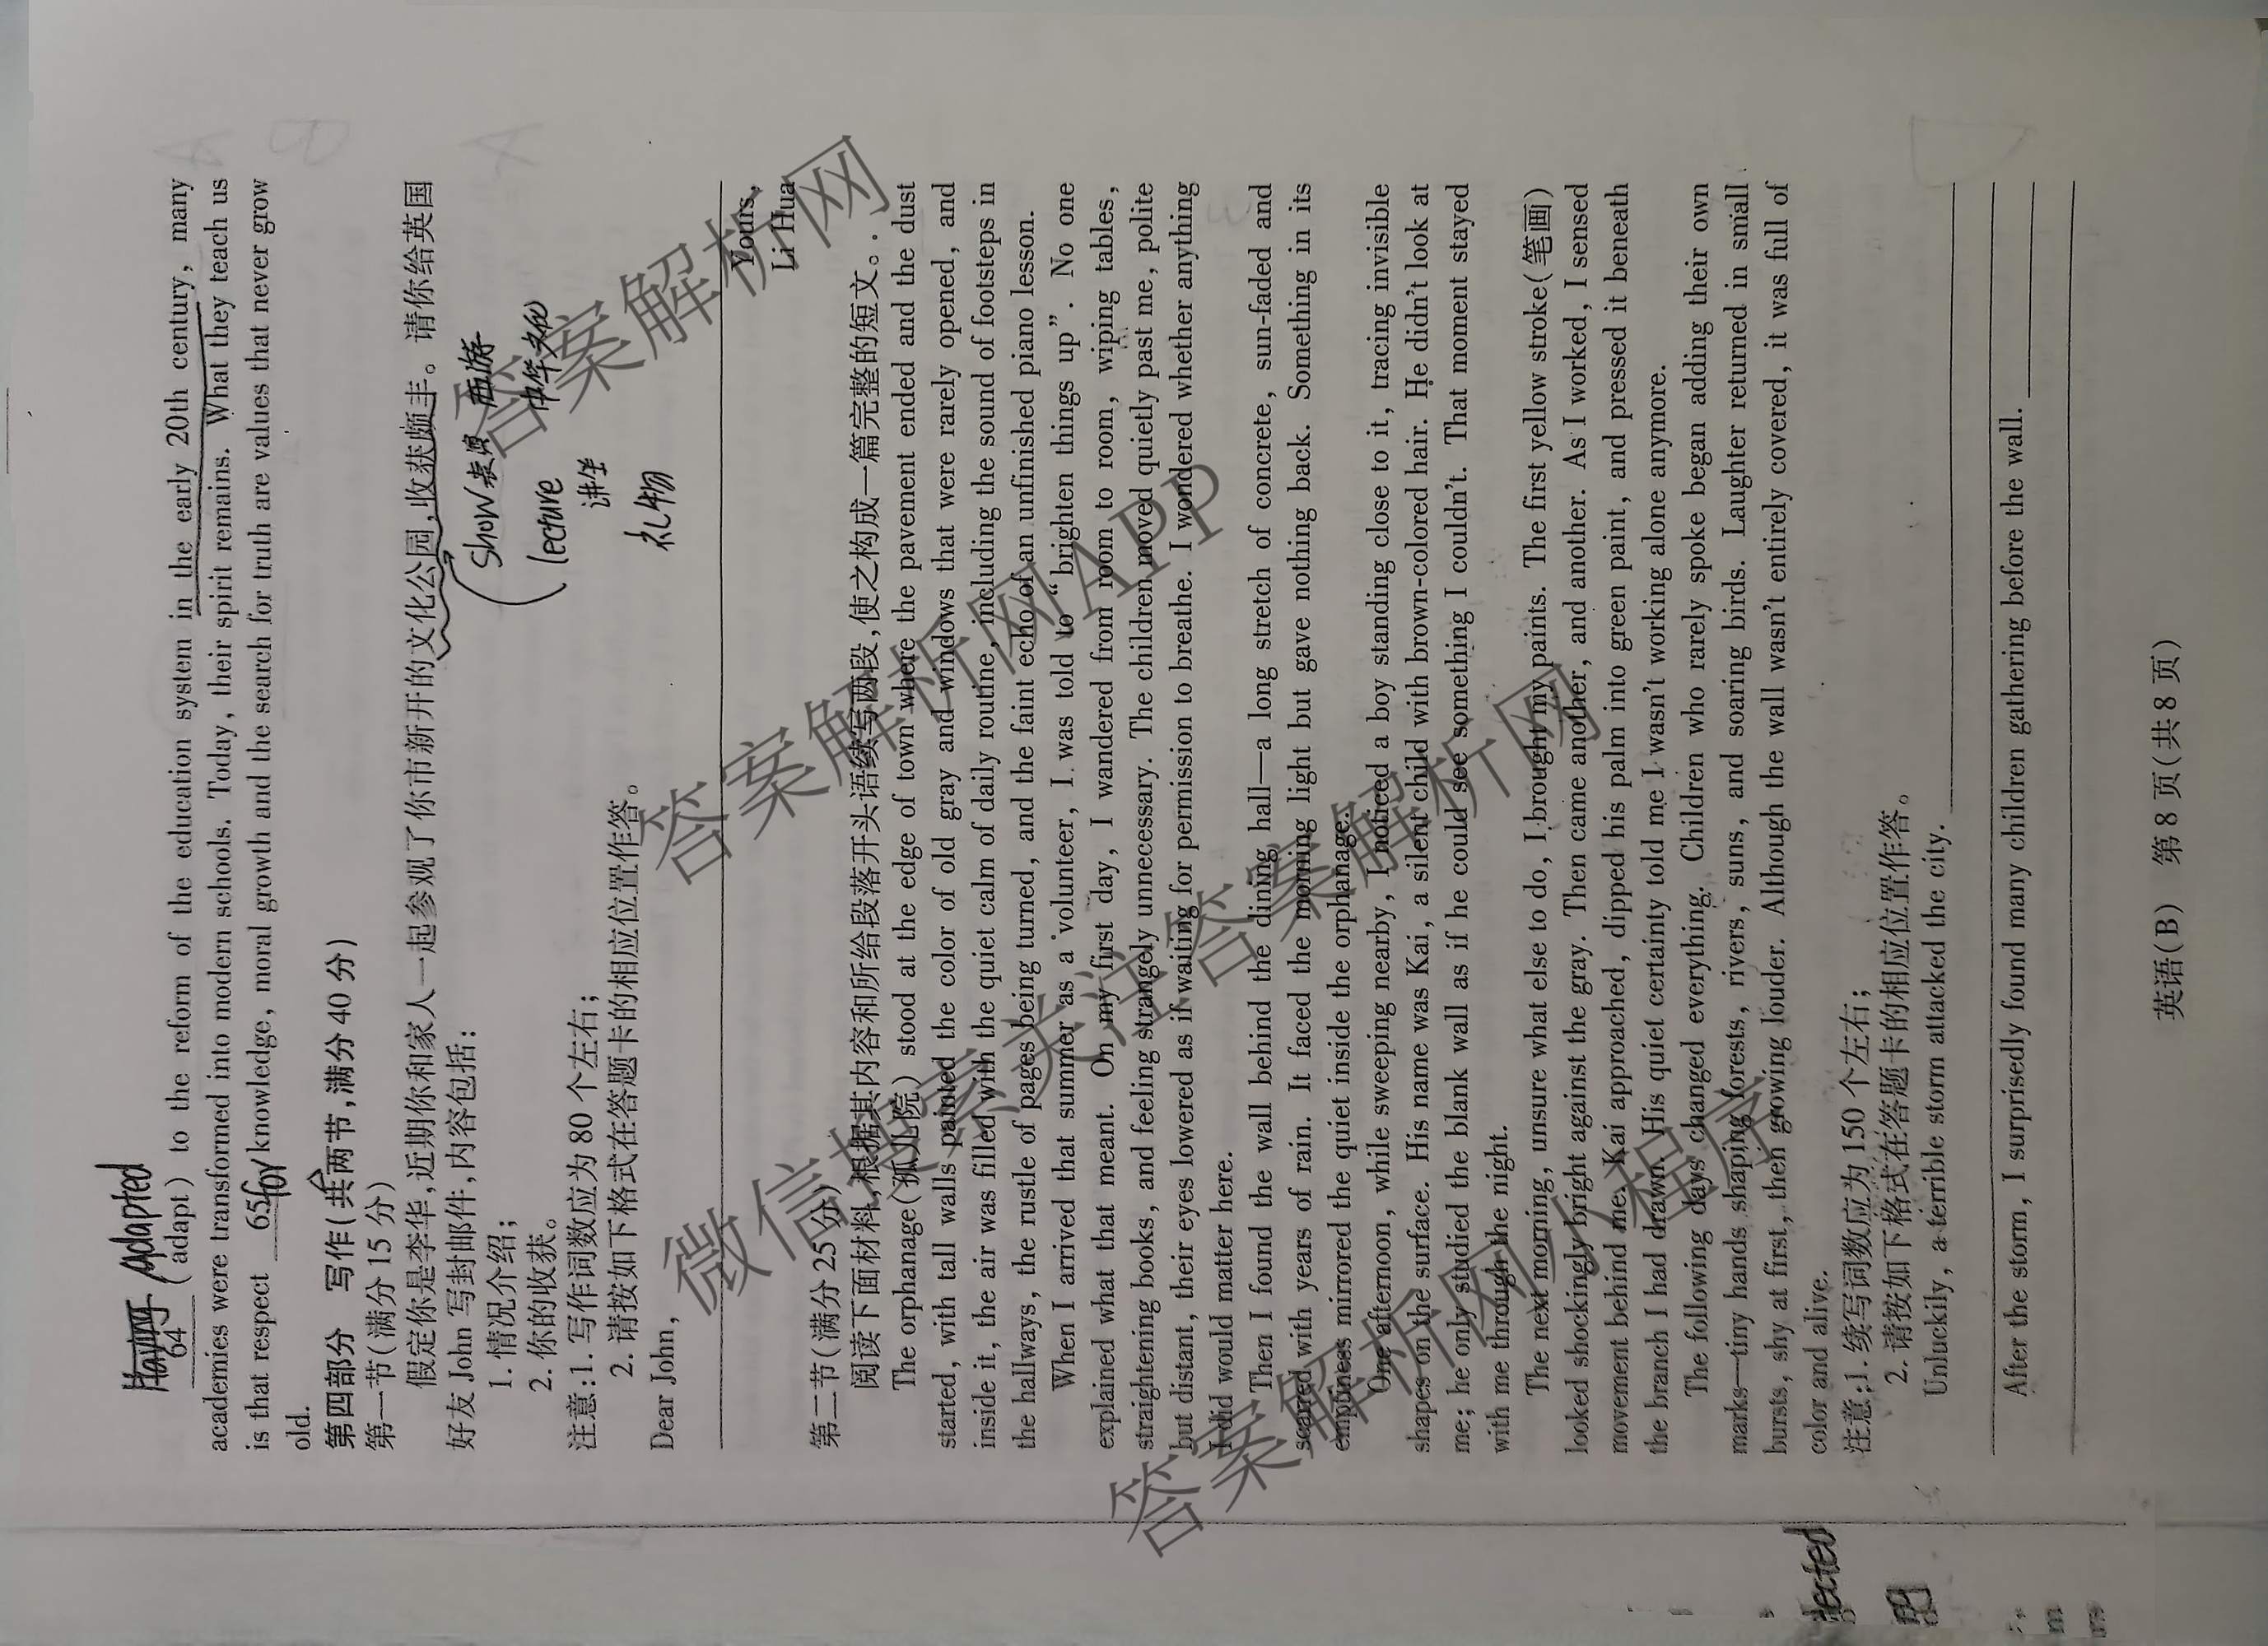 Having adapted
64 (adapt) to the reform of the education system in the early 20th century, many
academies were transformed into modern schools. Today, their spirit remains. What they teach us
is that respect 65 for knowledge, moral growth and the search for truth are values that never grow
old.
第四部分 写作(共两节,满分 40 分)
第一节(满分 15 分)
假定你是李华,近期你和家人一起参观了你市新开的文化公园,收获颇丰。请你给英国
好友 John 写封邮件,内容包括:
1. 情况介绍;
2. 你的收获。
show 表演 西游
lecture 中华文化
讲座
礼物
注意:1. 写作词数应为 80 个左右;
2. 请按如下格式在答题卡的相应位置作答。
Dear John,
Yours,
Li Hua
第二节(满分 25 分)
阅读下面材料,根据其内容和所给段落开头语续写两段,使之构成一篇完整的短文。
The orphanage(孤儿院) stood at the edge of town where the pavement ended and the dust
started, with tall walls painted the color of old gray and windows that were rarely opened, and
inside it, the air was filled with the quiet calm of daily routine, including the sound of footsteps in
the hallways, the rustle of pages being turned, and the faint echo of an unfinished piano lesson.
When I arrived that summer as a volunteer, I was told to “brighten things up”. No one
explained what that meant. On my first day, I wandered from room to room, wiping tables,
straightening books, and feeling strangely unnecessary. The children moved quietly past me, polite
but distant, their eyes lowered as if waiting for permission to breathe. I wondered whether anything
I did would matter here.
Then I found the wall behind the dining hall—a long stretch of concrete, sun-faded and
scarred with years of rain. It faced the morning light but gave nothing back. Something in its
emptiness mirrored the quiet inside the orphanage.
One afternoon, while sweeping nearby, I noticed a boy standing close to it, tracing invisible
shapes on the surface. His name was Kai, a silent child with brown-colored hair. He didn't look at
me; he only studied the blank wall as if he could see something I couldn't. That moment stayed
with me through the night.
The next morning, unsure what else to do, I brought my paints. The first yellow stroke(笔画)
looked shockingly bright against the gray. Then came another, and another. As I worked, I sensed
movement behind me. Kai approached, dipped his palm into green paint, and pressed it beneath
the branch I had drawn. His quiet certainty told me I wasn't working alone anymore.
The following days changed everything. Children who rarely spoke began adding their own
marks—tiny hands shaping forests, rivers, suns, and soaring birds. Laughter returned in small
bursts, shy at first, then growing louder. Although the wall wasn't entirely covered, it was full of
color and alive.
注意:1. 续写词数应为 150 个左右;
2. 请按如下格式在答题卡的相应位置作答。
Unluckily, a terrible storm attacked the city.
After the storm, I surprisedly found many children gathering before the wall.
英语(B) 第 8 页(共 8 页)
答案解析网
答案解析网APP
微信搜索关注答案解析网
答案解析网小程序